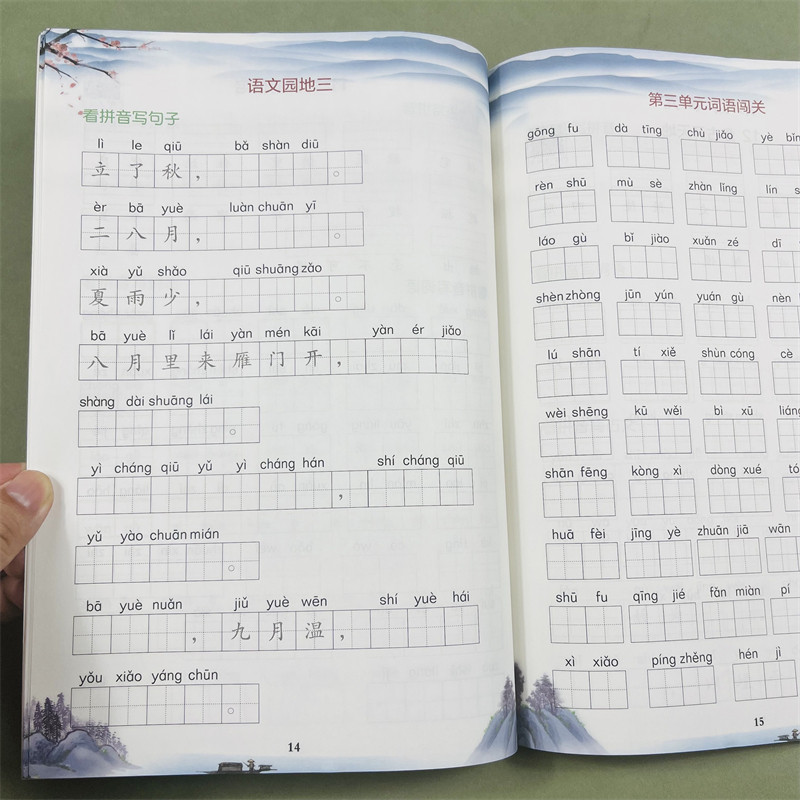 语文园地三
看拼音写句子
lì le qiū bǎ shàn diū
立了秋，。
èr bā yuè luàn chuān yī
二八月，。
xià yǔ shǎo qiū shuāng zǎo
夏雨少，。
bā yuè lǐ lái yàn mén kāi yàn ér jiǎo
八月里来雁门开，
shàng dài shuāng lái
。
yì cháng qiū yǔ yì cháng hán shí cháng qiū
，
yǔ yào chuān mián
。
bā yuè nuǎn jiǔ yuè wēn shí yuè hái
，九月温，
yǒu xiǎo yáng chūn
。
14
第三单元词语闯关
gōng fu dà tīng chù jiǎo yè
rèn shū mù sè zhàn líng lín
láo gù bǐ jiào xuǎn zé
shèn zhòng jūn yún yuán gù nèn
lú shān tí xiě shùn cóng cè
wèi shēng kū wěi bì xū
shān fēng kòng xì dòng xué
huā fèi jīng yè zhuān jiā wān
shū fu qīng jié fǎn miàn pí
xì xiǎo píng zhěng hén jì
15